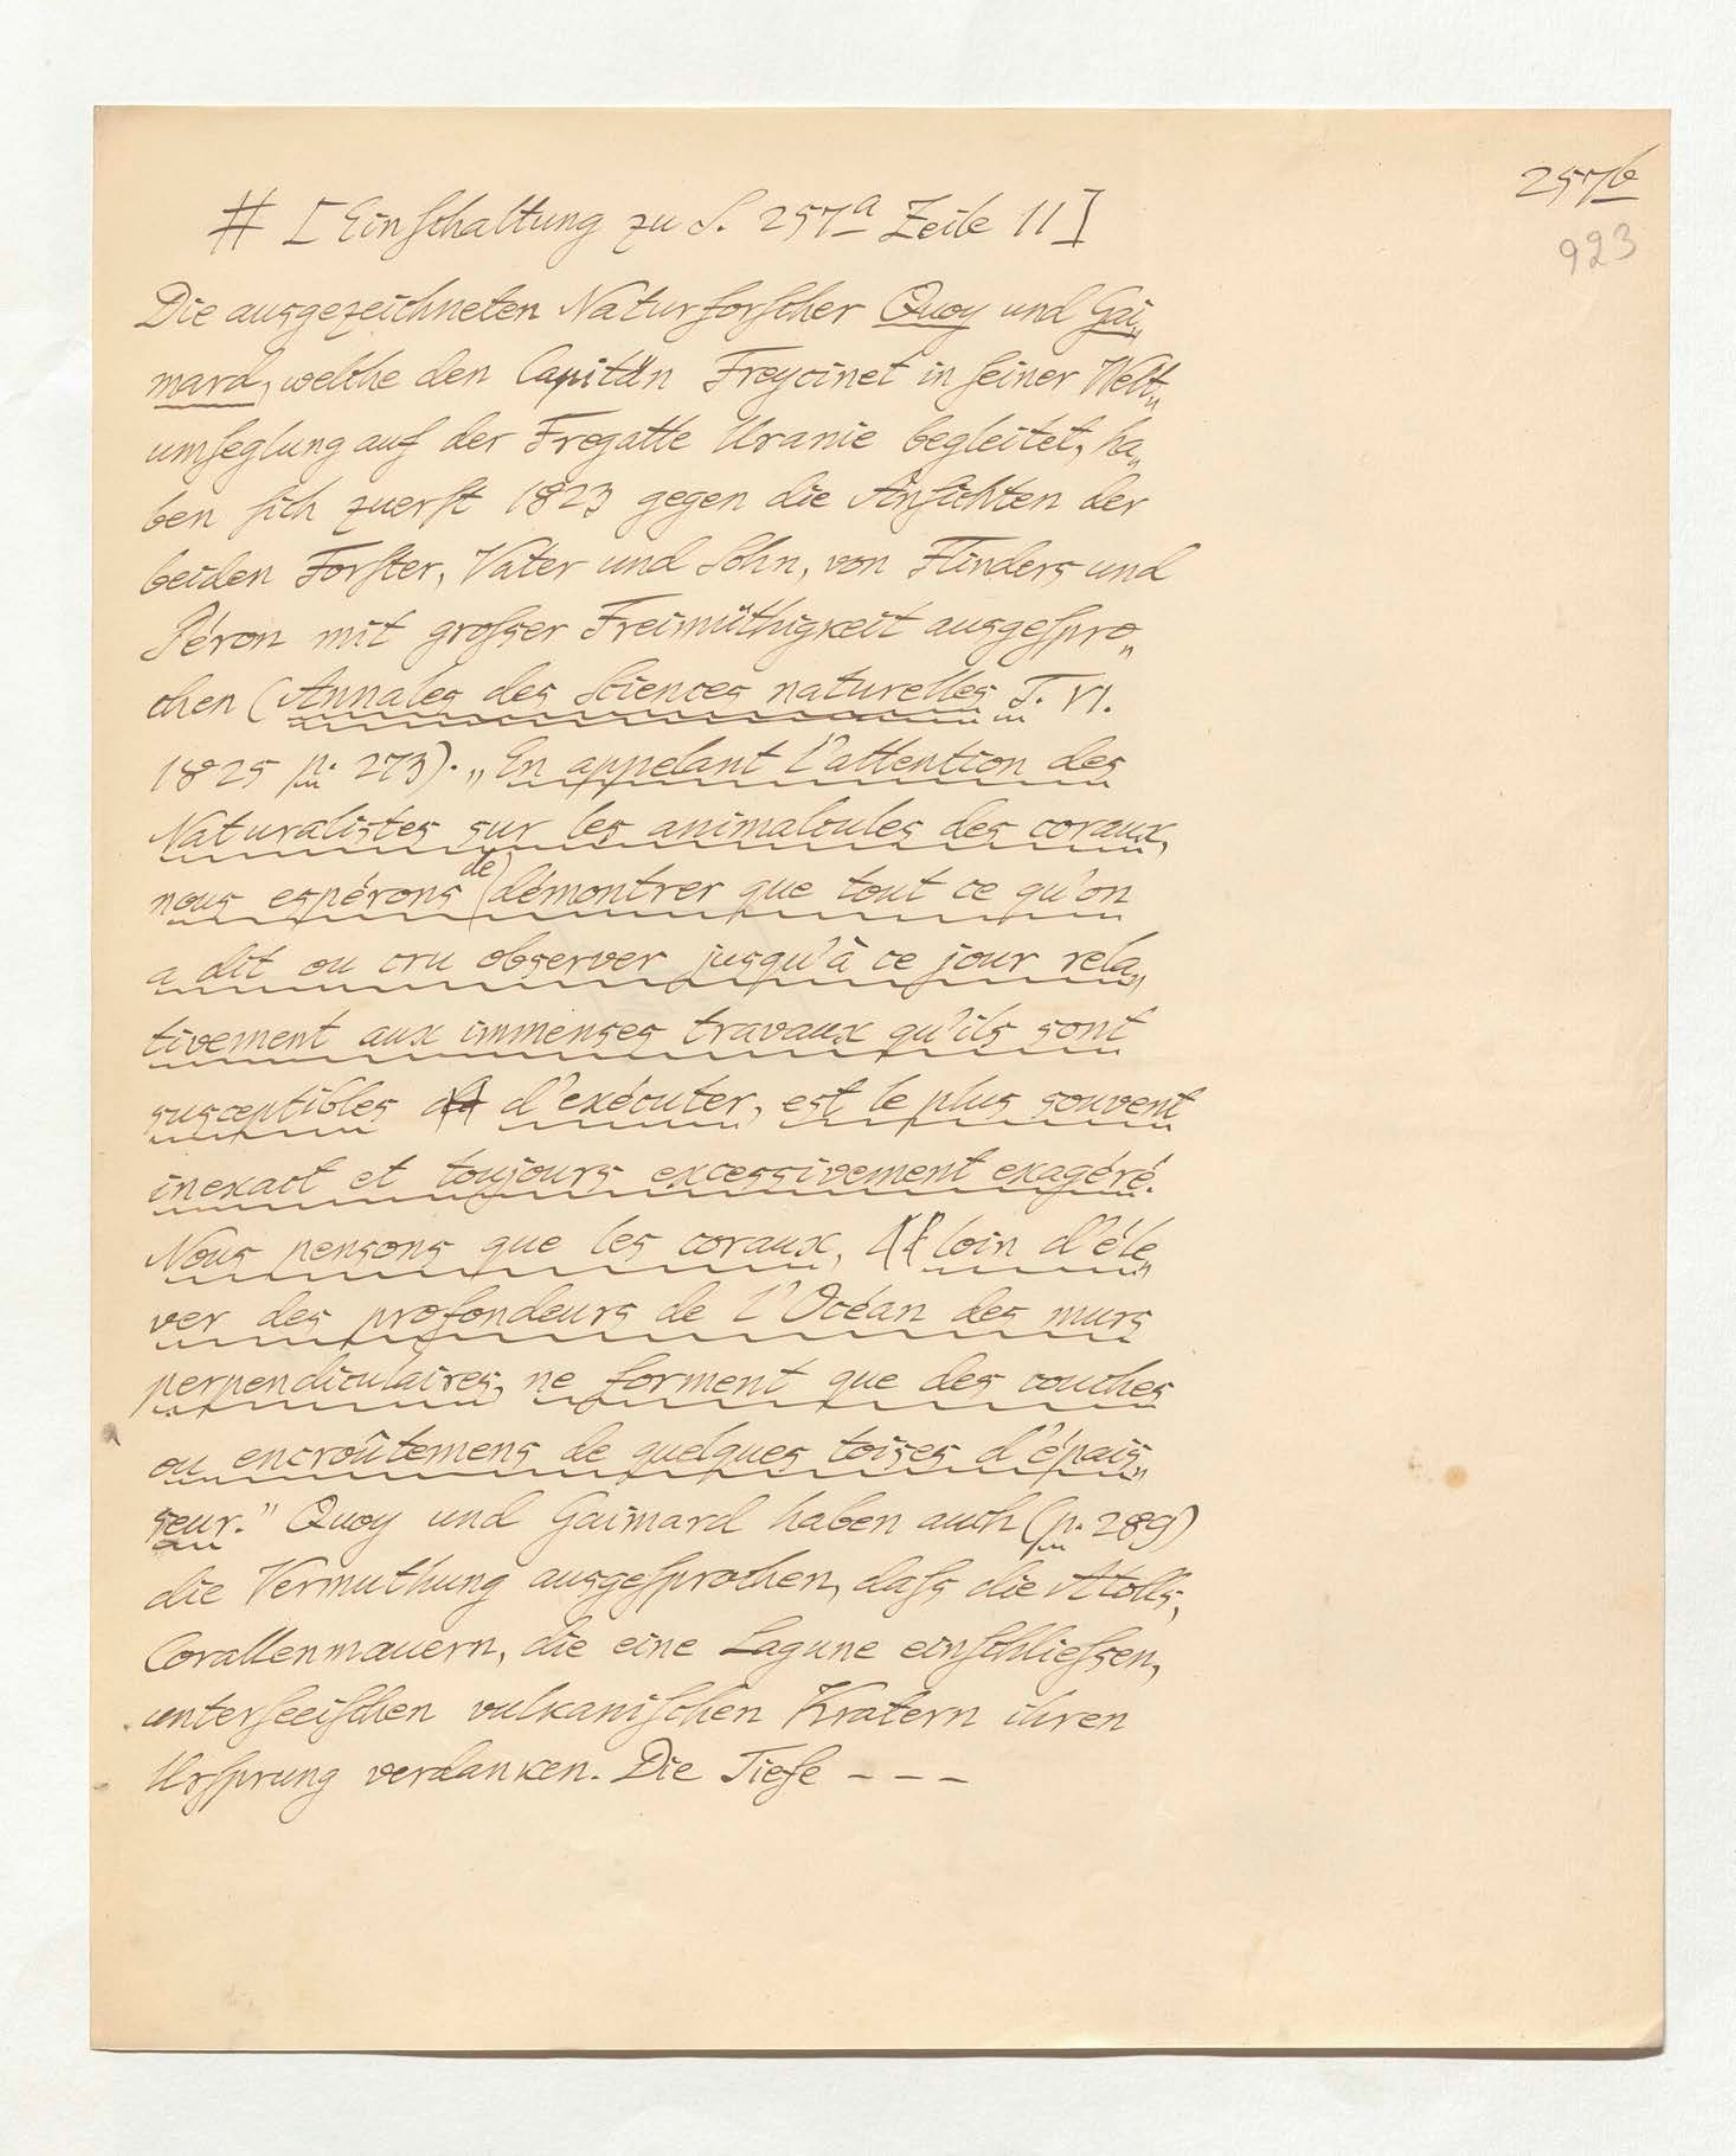 257b
923
# [Einschaltung zu S. 257a Zeile 11]
Die ausgezeichneten Naturforscher Quoy und Gai„
mard, welche den Capitän Freycinet in seiner Welt„
umseglung auf der Fregatte Uranie begleitet, ha„
ben sich zuerst 1823 gegen die Ansichten der
beiden Forster, Vater und Sohn, von Flinders und
Péron mit grosser Freimüthigkeit ausgespro„
chen (Annales des Sciences naturelles T. VI.
1825 p. 273). „En appelant l'attention des
Naturalistes sur les animalcules des coraux,
nous espérons de démontrer que tout ce qu'on
a dit ou cru observer jusqu'à ce jour rela„
tivement aux immenses travaux qu'ils sont
susceptibles d'exécuter, est le plus souvent
inexact et toujours excessivement exagéré.
Nous pensons que les coraux, loin d'éle„
ver des profondeurs de l'Océan des murs
perpendiculaires, ne forment que des couches
ou encroûtemens de quelques toises d'épais„
seur." Quoy und Gaimard haben auch (p. 289)
die Vermuthung ausgesprochen, dass die Atolls,
Corallenmauern, die eine Lagune einschliessen,
unterseeischen vulkanischen Kratern ihren
Ursprung verdanken. Die Tiefe - - -